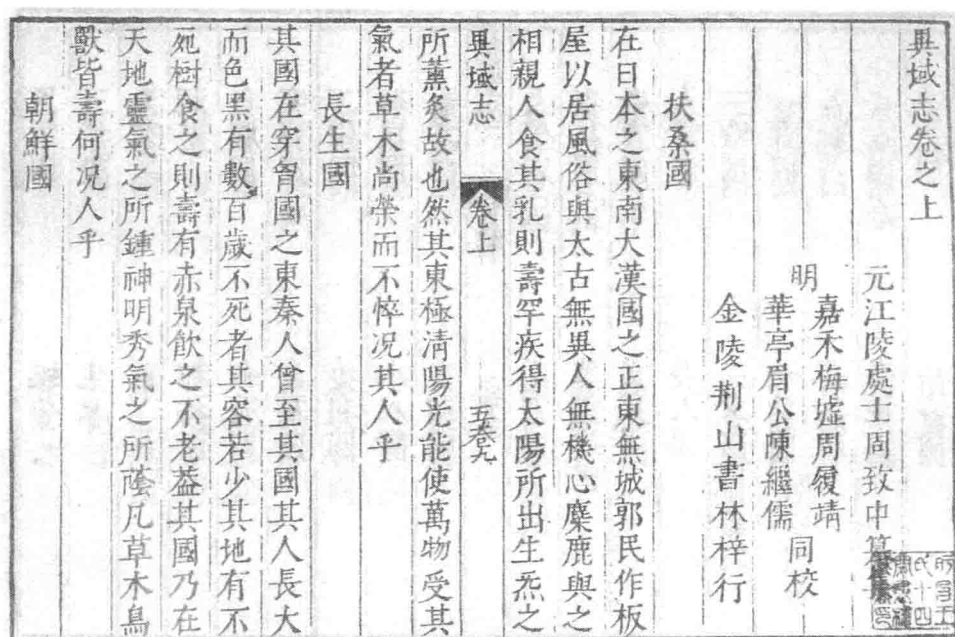 異域志卷之上
元江陵處士周致中纂集
明
嘉禾梅墟周履靖
華亭眉公陳繼儒
同校
金陵荆山書林梓行
扶桑國
在日本之東南大漢國之正東無城郭民作板
屋以居風俗與太古無異人無機心麋鹿與之
相親人食其乳則壽罕疾得太陽所出生炁之
異域志
卷上
五卷九
所薰炙故也然其東極清陽光能使萬物受其
氣者草木尚榮而不悴况其人乎
長生國
其國在穿胷國之東秦人曾至其國其人長大
而色黑有數百歲不死者其容若少其地有不
死樹食之則壽有赤泉飲之不老葢其國乃在
天地靈氣之所鍾神明秀氣之所蔭凡草木鳥
獸皆壽何况人乎
朝鮮國